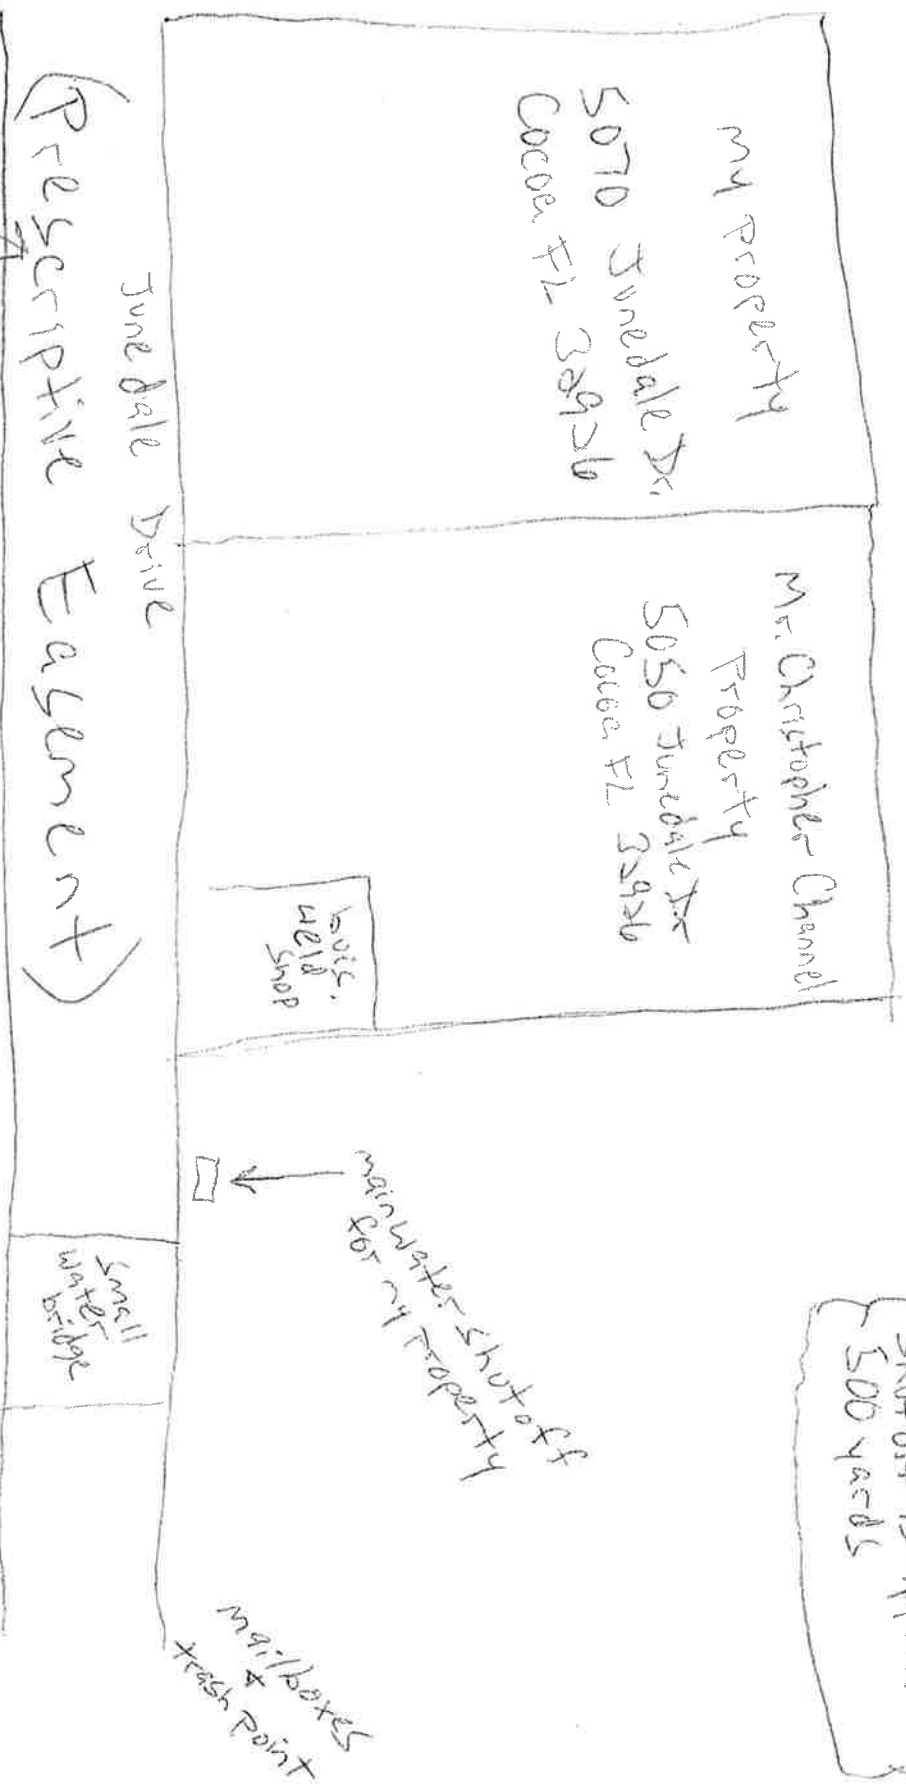 My Property
5070 Junedale Dr.
Cocoa FL 32926
Mr. Christopher Channel
Property
5050 Junedale Dr
Cocoa FL 32926
weld
shop
Junedale Drive
(Prescriptive Easement)
main water shutoff
for my property
small
water
bridge
mailboxes
&
trash point
500 yards